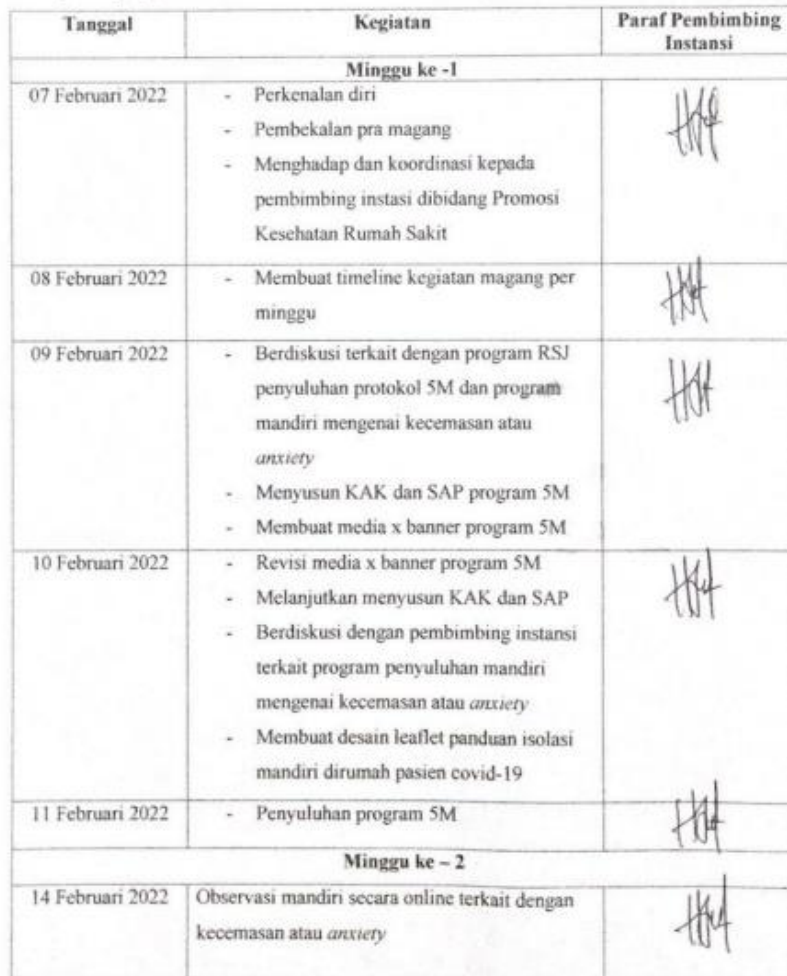 Tanggal Kegiatan Paraf Pembimbing
Instansi
Minggu ke -1
07 Februari 2022 - Perkenalan diri
- Pembekalan pra magang
- Menghadap dan koordinasi kepada
pembimbing instasi dibidang Promosi
Kesehatan Rumah Sakit
08 Februari 2022 - Membuat timeline kegiatan magang per
minggu
09 Februari 2022 - Berdiskusi terkait dengan program RSJ
penyuluhan protokol 5M dan program
mandiri mengenai kecemasan atau
anxiety
- Menyusun KAK dan SAP program 5M
- Membuat media x banner program 5M
10 Februari 2022 - Revisi media x banner program 5M
- Melanjutkan menyusun KAK dan SAP
- Berdiskusi dengan pembimbing instansi
terkait program penyuluhan mandiri
mengenai kecemasan atau anxiety
- Membuat desain leaflet panduan isolasi
mandiri dirumah pasien covid-19
11 Februari 2022 - Penyuluhan program 5M
Minggu ke – 2
14 Februari 2022 Observasi mandiri secara online terkait dengan
kecemasan atau anxiety